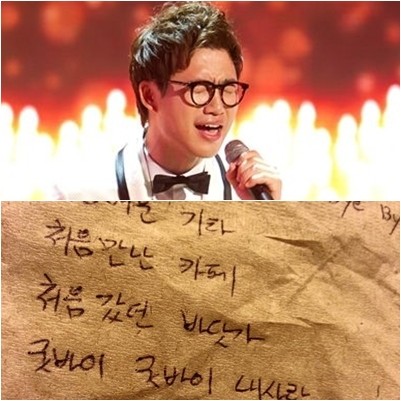 기타
처음 만난 카페
처음 갔던 바닷가
굿바이 굿바이 내사랑